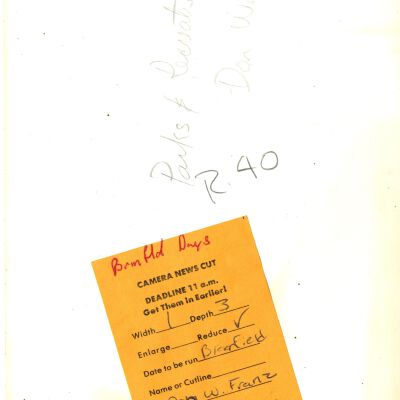 Parks & Recreation
Don W.
R. 40
Brmfld Days
CAMERA NEWS CUT
DEADLINE 11 a.m.
Get Them in Earlier!
Width 1 Depth 3
Enlarge Reduce ✓
Date to be run
Name or Cutline
Don W. Franz